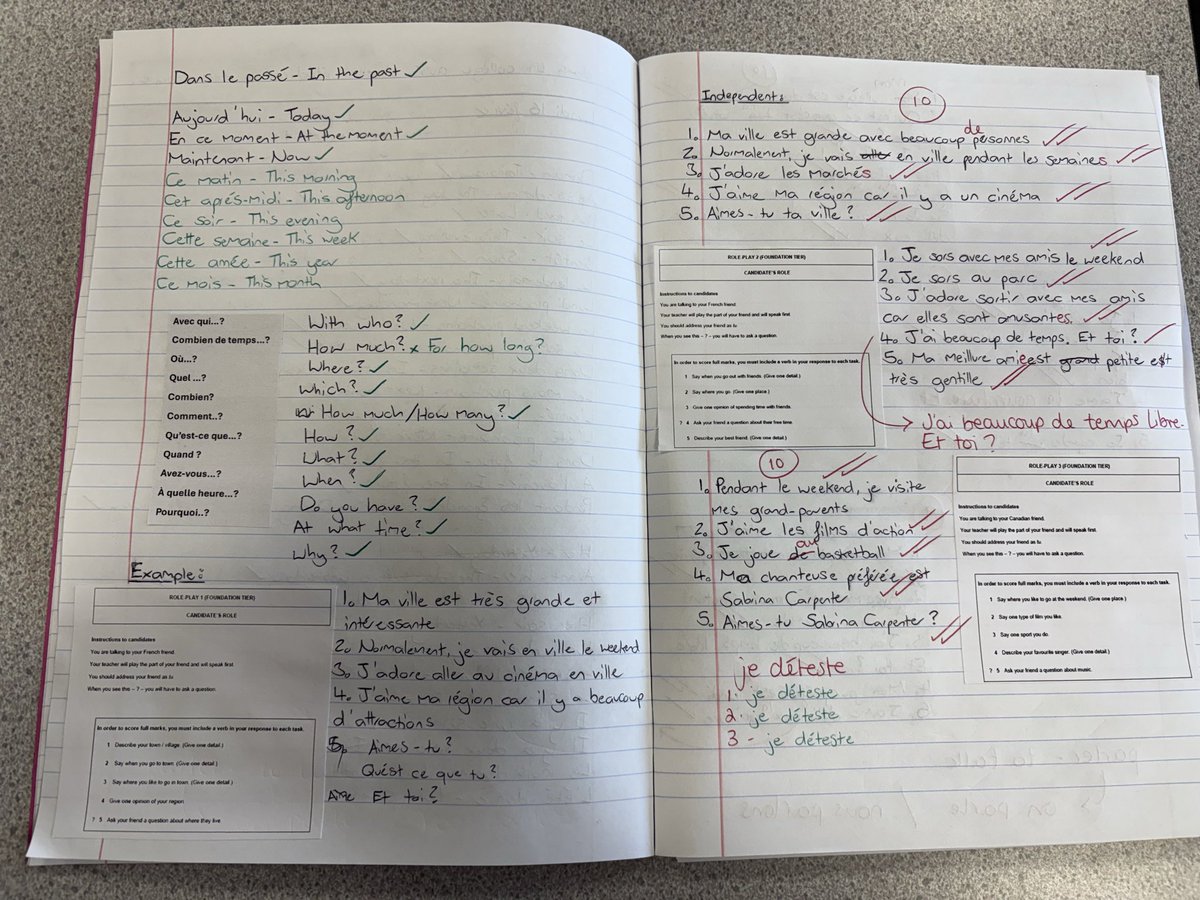 Dans le passé - In the past ✓
Aujourd'hui - Today ✓
En ce moment - At the moment ✓
Maintenant - Now ✓
Ce matin - This morning
Cet aprés-midi - This afternoon
Ce soir - This evening
Cette semaine - This week
Cette année - This year
Ce mois - This month
Avec qui...? With who? ✓
Combien de temps...? How much? x For how long?
Où...? Where? ✓
Quel ...? Which? ✓
Combien? How much/How many? ✓
Comment..? How? ✓
Qu'est-ce que...? What? ✓
Quand ? When? ✓
Avez-vous...? Do you have? ✓
À quelle heure...? At what time? ✓
Pourquoi..? Why? ✓
Example:
ROLE-PLAY 1 (FOUNDATION TIER)
CANDIDATE'S ROLE
Instructions to candidates
You are talking to your French friend.
Your teacher will play the part of your friend and will speak first.
You should address your friend as tu
When you see this – ? – you will have to ask a question.
In order to score full marks, you must include a verb in your response to each task.
1 Describe your town / village. (Give one detail.)
2 Say when you go to town. (Give one detail.)
3 Say where you like to go in town. (Give one detail.)
4 Give one opinion of your region.
? 5 Ask your friend a question about where they live
1. Ma ville est très grande et
intéressante
2. Normalement, je vais en ville le weekend
3. J'adore aller au cinéma en ville
4. J'aime ma région car il y a beaucoup
d'attractions
5. Aimes-tu?
Qu'est ce que tu?
Et toi?
Independent:
10
1. Ma ville est grande avec beaucoup de personnes
2. Normalement, je vais en ville pendant les semaines
3. J'adore les marchés
4. J'aime ma région car il y a un cinéma
5. Aimes-tu ta ville?
ROLE-PLAY 2 (FOUNDATION TIER)
CANDIDATE'S ROLE
Instructions to candidates
You are talking to your French friend.
Your teacher will play the part of your friend and will speak first.
You should address your friend as tu
When you see this – ? – you will have to ask a question.
In order to score full marks, you must include a verb in your response to each task.
1 Say when you go out with friends. (Give one detail.)
2 Say where you go. (Give one place.)
3 Give one opinion of spending time with friends.
? 4 Ask your friend a question about their free time.
5 Describe your best friend. (Give one detail.)
1. Je sors avec mes amis le weekend
2. Je sors au parc
3. J'adore sortir avec mes amis
car elles sont amusantes.
4. J'ai beaucoup de temps. Et toi?
5. Ma meillure amie est grand petite est
très gentille
J'ai beaucoup de temps libre.
Et toi?
10
1. Pendant le weekend, je visite
mes grand-parents
2. J'aime les films d'action
3. Je joue de au basketball
4. Ma chanteuse préférée est
Sabrina Carpenter
5. Aimes-tu Sabrina Carpenter?
ROLE-PLAY 3 (FOUNDATION TIER)
CANDIDATE'S ROLE
Instructions to candidates
You are talking to your Canadian friend.
Your teacher will play the part of your friend and will speak first.
You should address your friend as tu
When you see this – ? – you will have to ask a question.
In order to score full marks, you must include a verb in your response to each task.
1 Say where you like to go at the weekend. (Give one place.)
2 Say one type of film you like.
3 Say one sport you do.
4 Describe your favourite singer. (Give one detail.)
? 5 Ask your friend a question about music.
je déteste
1. je déteste
2. je déteste
3 - je déteste